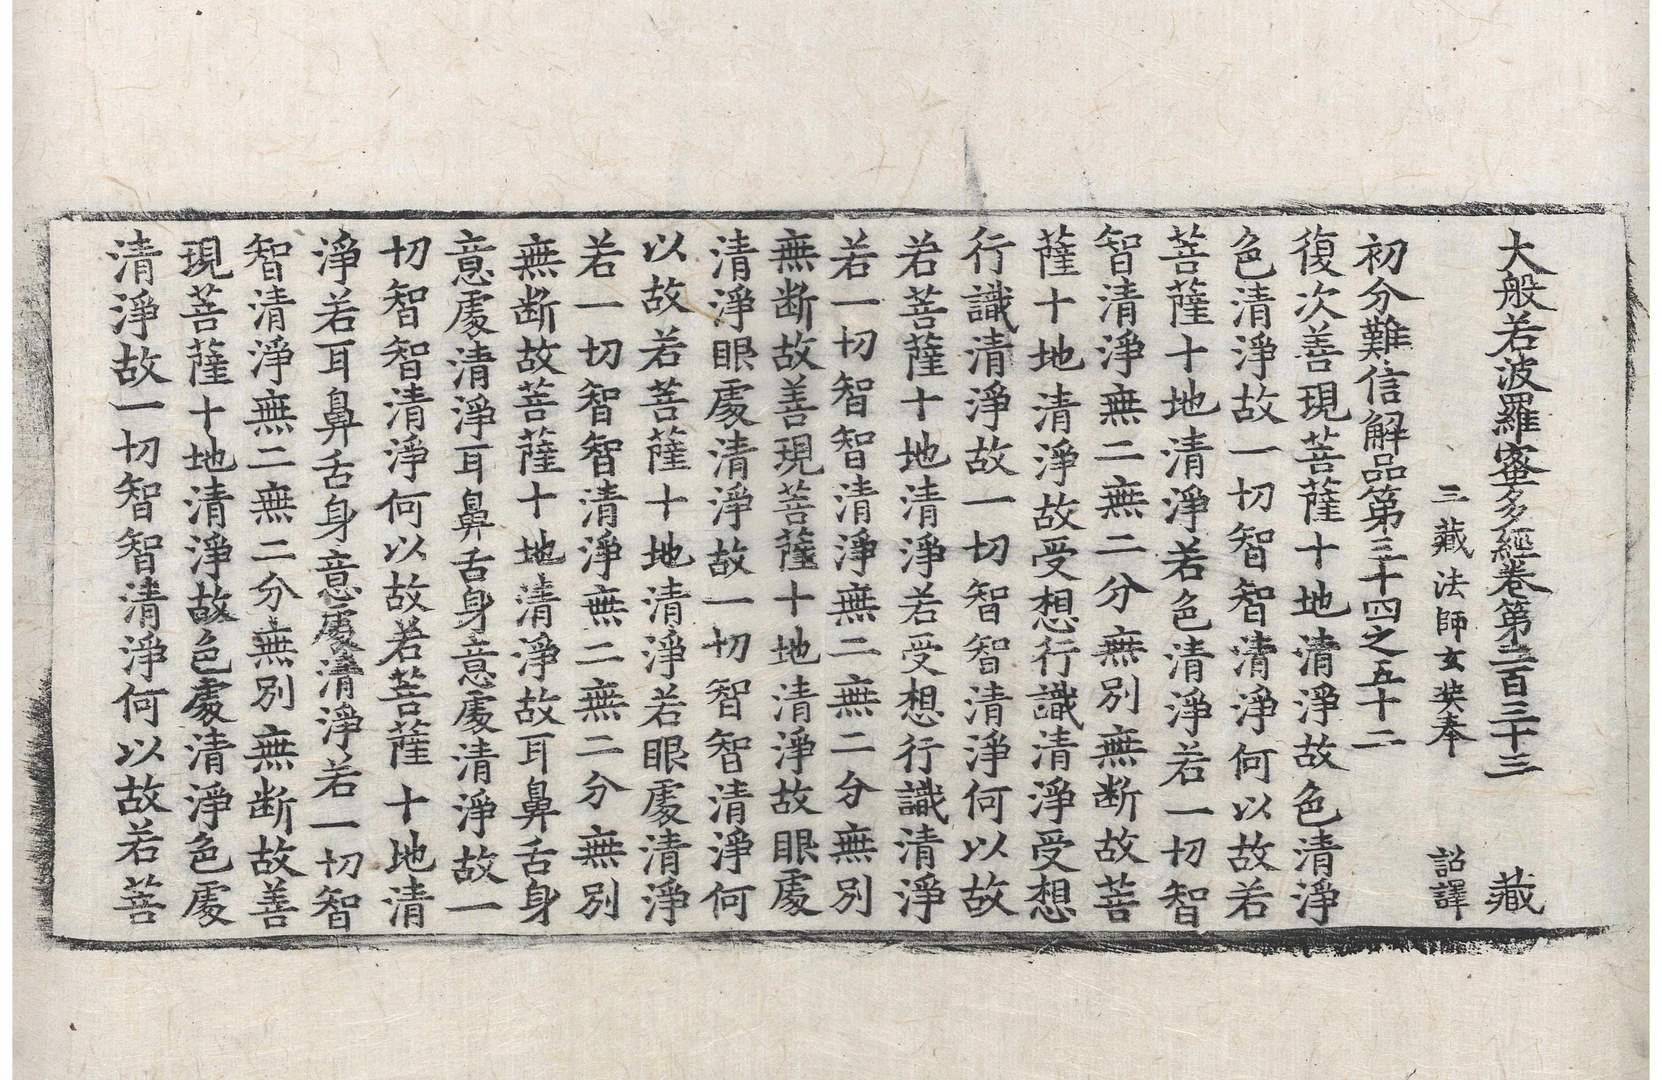 大般若波羅蜜多經卷第二百三十三 藏
三藏法師玄奘奉 詔譯
初分難信解品第三十四之五十二
復次善現菩薩十地清淨故色清淨
色清淨故一切智智清淨何以故若
菩薩十地清淨若色清淨若一切智
智清淨無二無二分無別無断故菩
薩十地清淨故受想行識清淨受想
行識清淨故一切智智清淨何以故
若菩薩十地清淨若受想行識清淨
若一切智智清淨無二無二分無別
無断故善現菩薩十地清淨故眼處
清淨眼處清淨故一切智智清淨何
以故若菩薩十地清淨若眼處清淨
若一切智智清淨無二無二分無別
無断故菩薩十地清淨故耳鼻舌身
意處清淨耳鼻舌身意處清淨故一
切智智清淨何以故若菩薩十地清
淨若耳鼻舌身意處清淨若一切智
智清淨無二無二分無別無断故善
現菩薩十地清淨故色處清淨色處
清淨故一切智智清淨何以故若菩